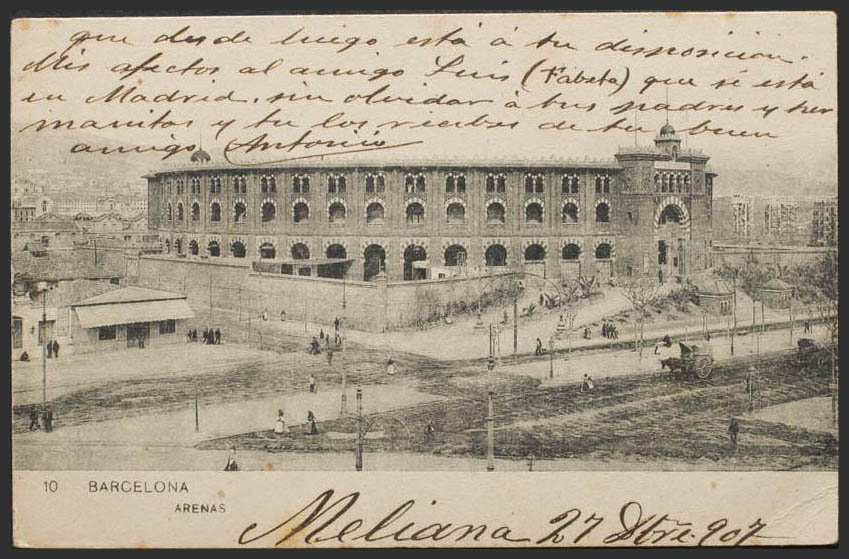 que desde luego está á tu disposición.
Mis afectos al amigo Luís (Fabata) que sé está
en Madrid, sin olvidar á tus padres y her
manitos y tu los recibes de tu buen
amigo Antonio
10 BARCELONA
ARENAS
Meliana 27 Dbre. 907